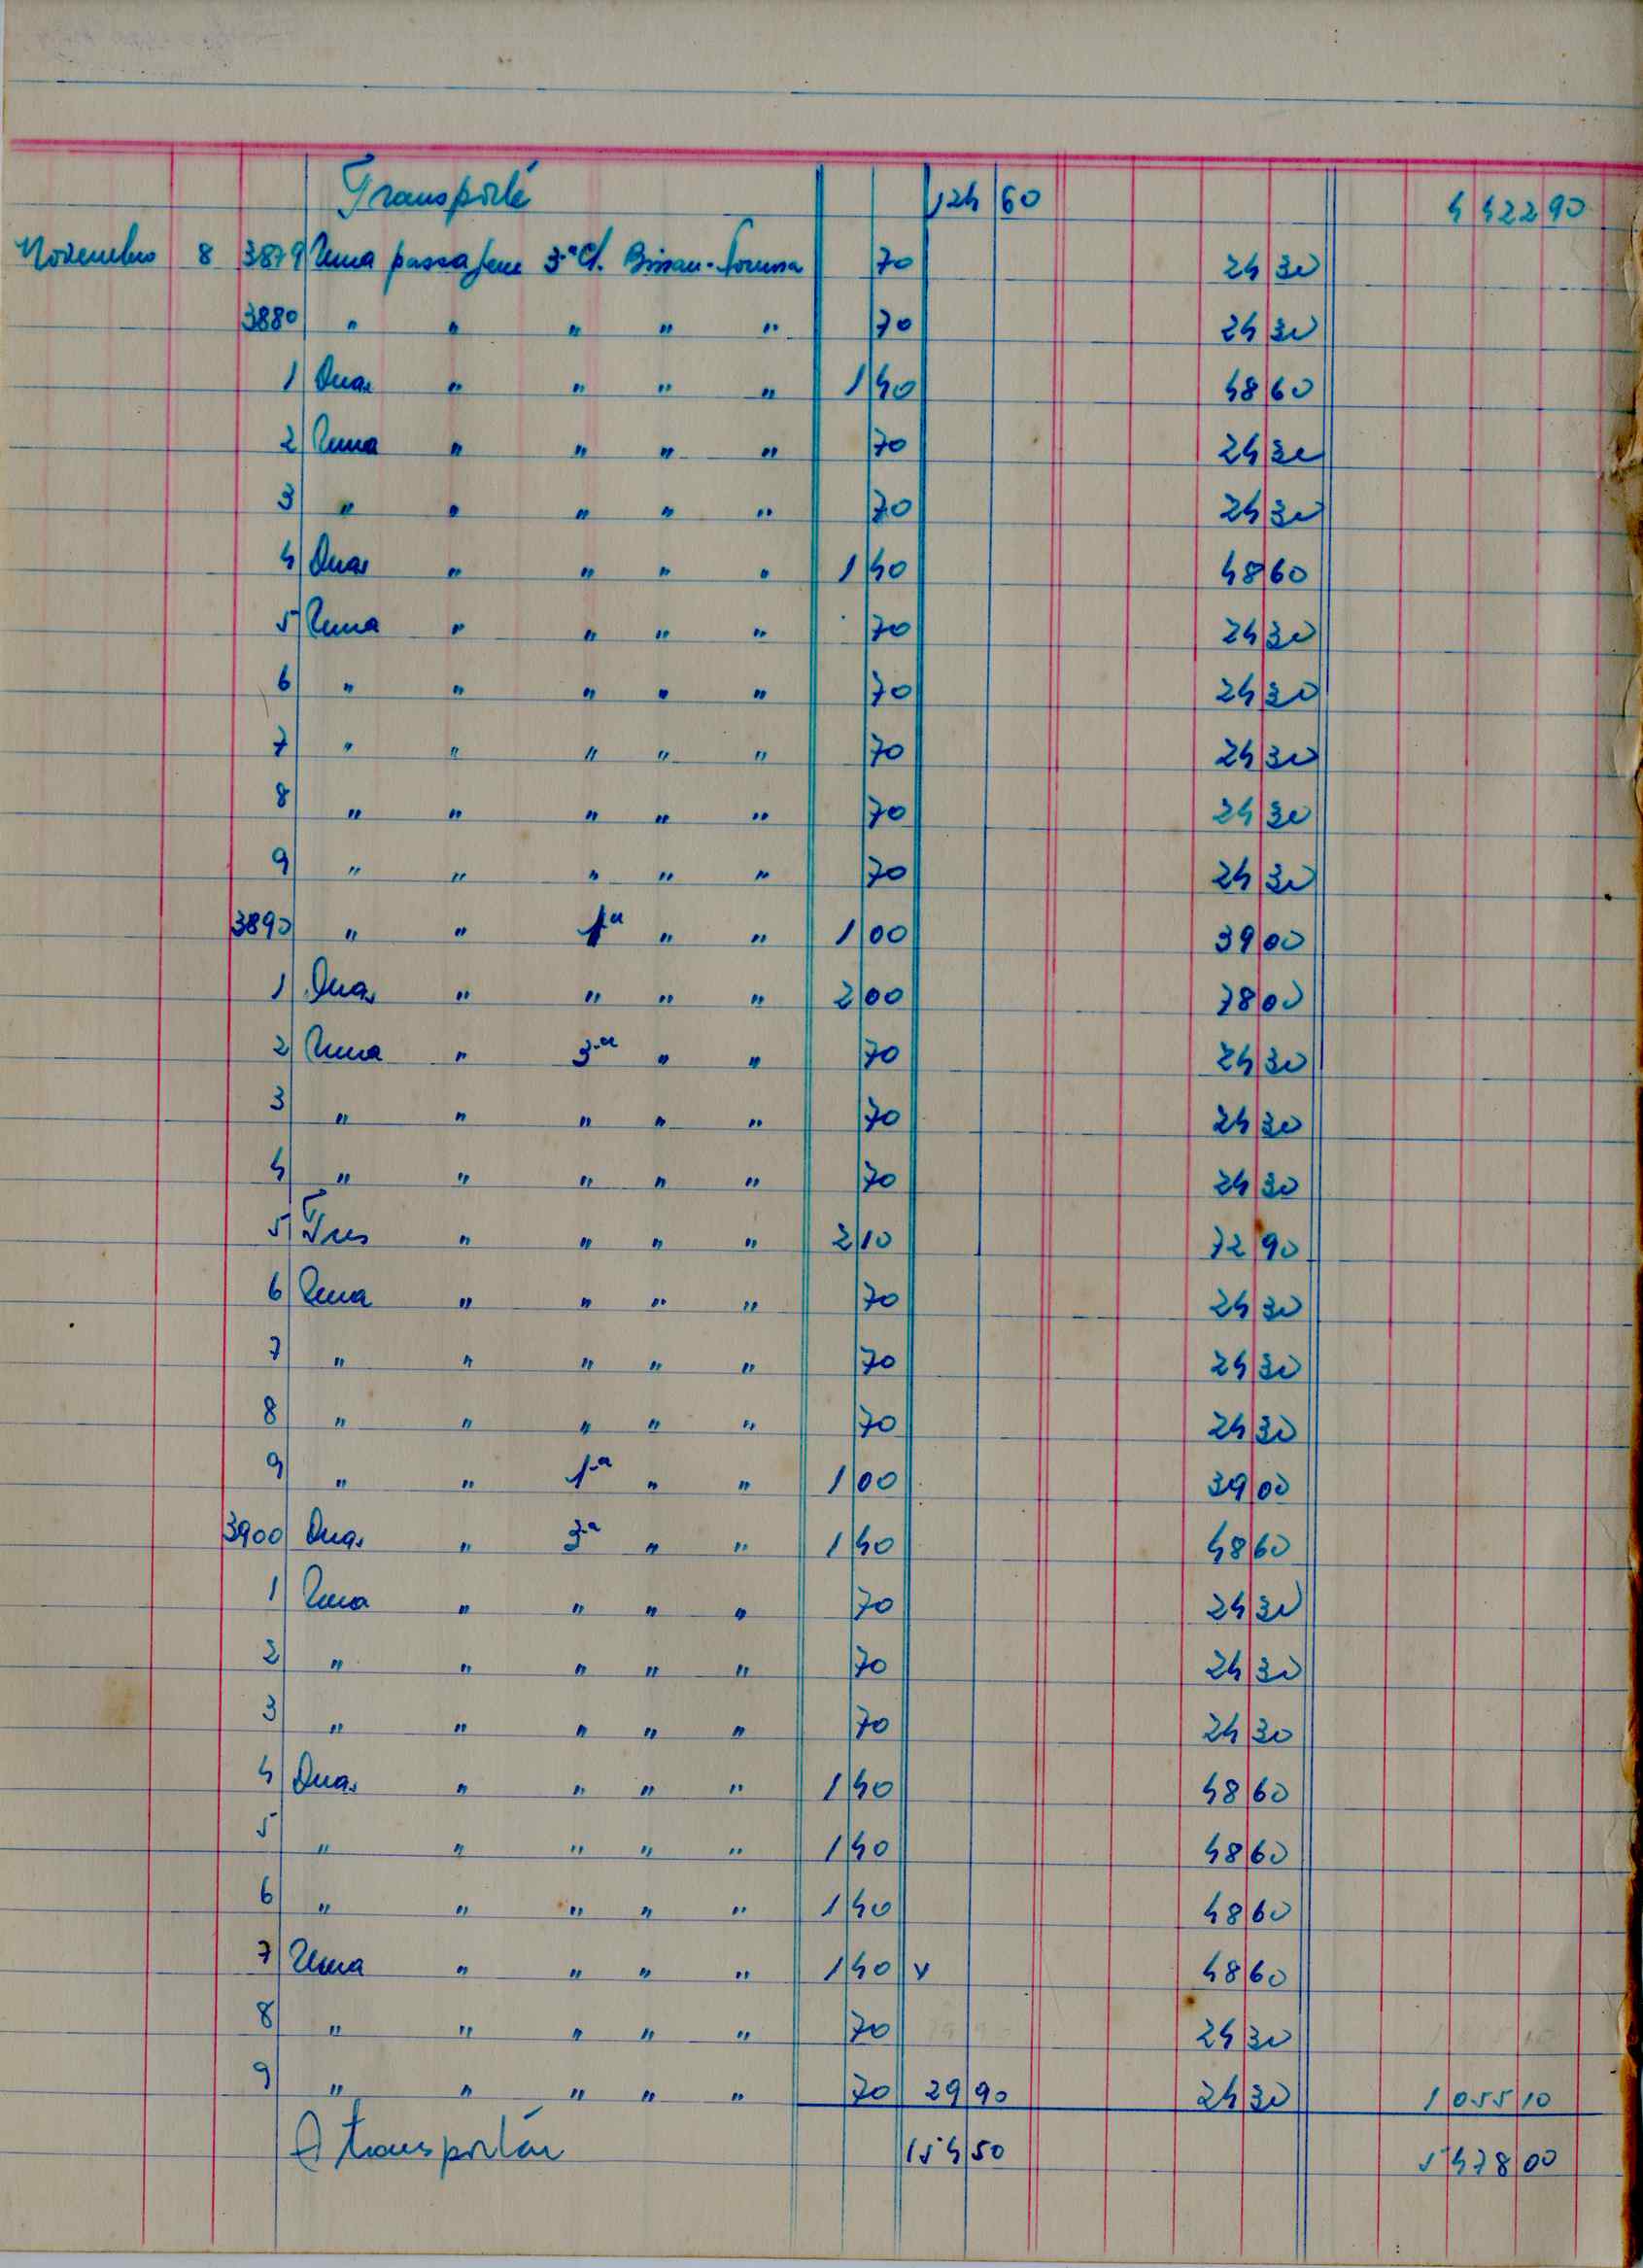 Transporte 124 60 4 422 90
Novembro 8 3879 Uma passagem 3.ª Cl. Bissau- 70 24 30
3880 " " " " " 70 24 30
1 Duas " " " " 1 40 48 60
2 Uma " " " " 70 24 30
3 " " " " " 70 24 30
4 Duas " " " " 1 40 48 60
5 Uma " " " " 70 24 30
6 " " " " " 70 24 30
7 " " " " " 70 24 30
8 " " " " " 70 24 30
9 " " " " " 70 24 30
3890 " " 1ª " " 1 00 39 00
1 Duas " " " " 2 00 78 00
2 Uma " 3.ª " " 70 24 30
3 " " " " " 70 24 30
4 " " " " " 70 24 30
5 Tres " " " " 2 10 72 90
6 Uma " " " " 70 24 30
7 " " " " " 70 24 30
8 " " " " " 70 24 30
9 " " 1.ª " " 1 00 39 00
3900 Duas " 3.ª " " 1 40 48 60
1 Uma " " " " 70 24 30
2 " " " " " 70 24 30
3 " " " " " 70 24 30
4 Duas " " " " 1 40 48 60
5 " " " " " 1 40 48 60
6 " " " " " 1 40 48 60
7 Uma " " " " 1 40 v 48 60
8 " " " " " 70 24 30
9 " " " " " 70 29 90 24 30 1 055 10
A transportar 154 50 5 478 00